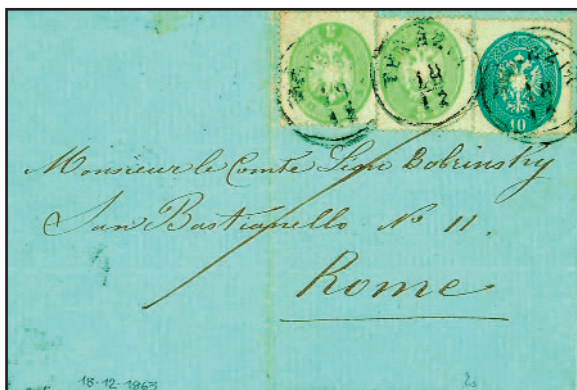 3
10
18
12
18
12
18
Monsieur le Comte Léon Bobrinsky
San Bastianello No 11.
Rome
18-12-1863